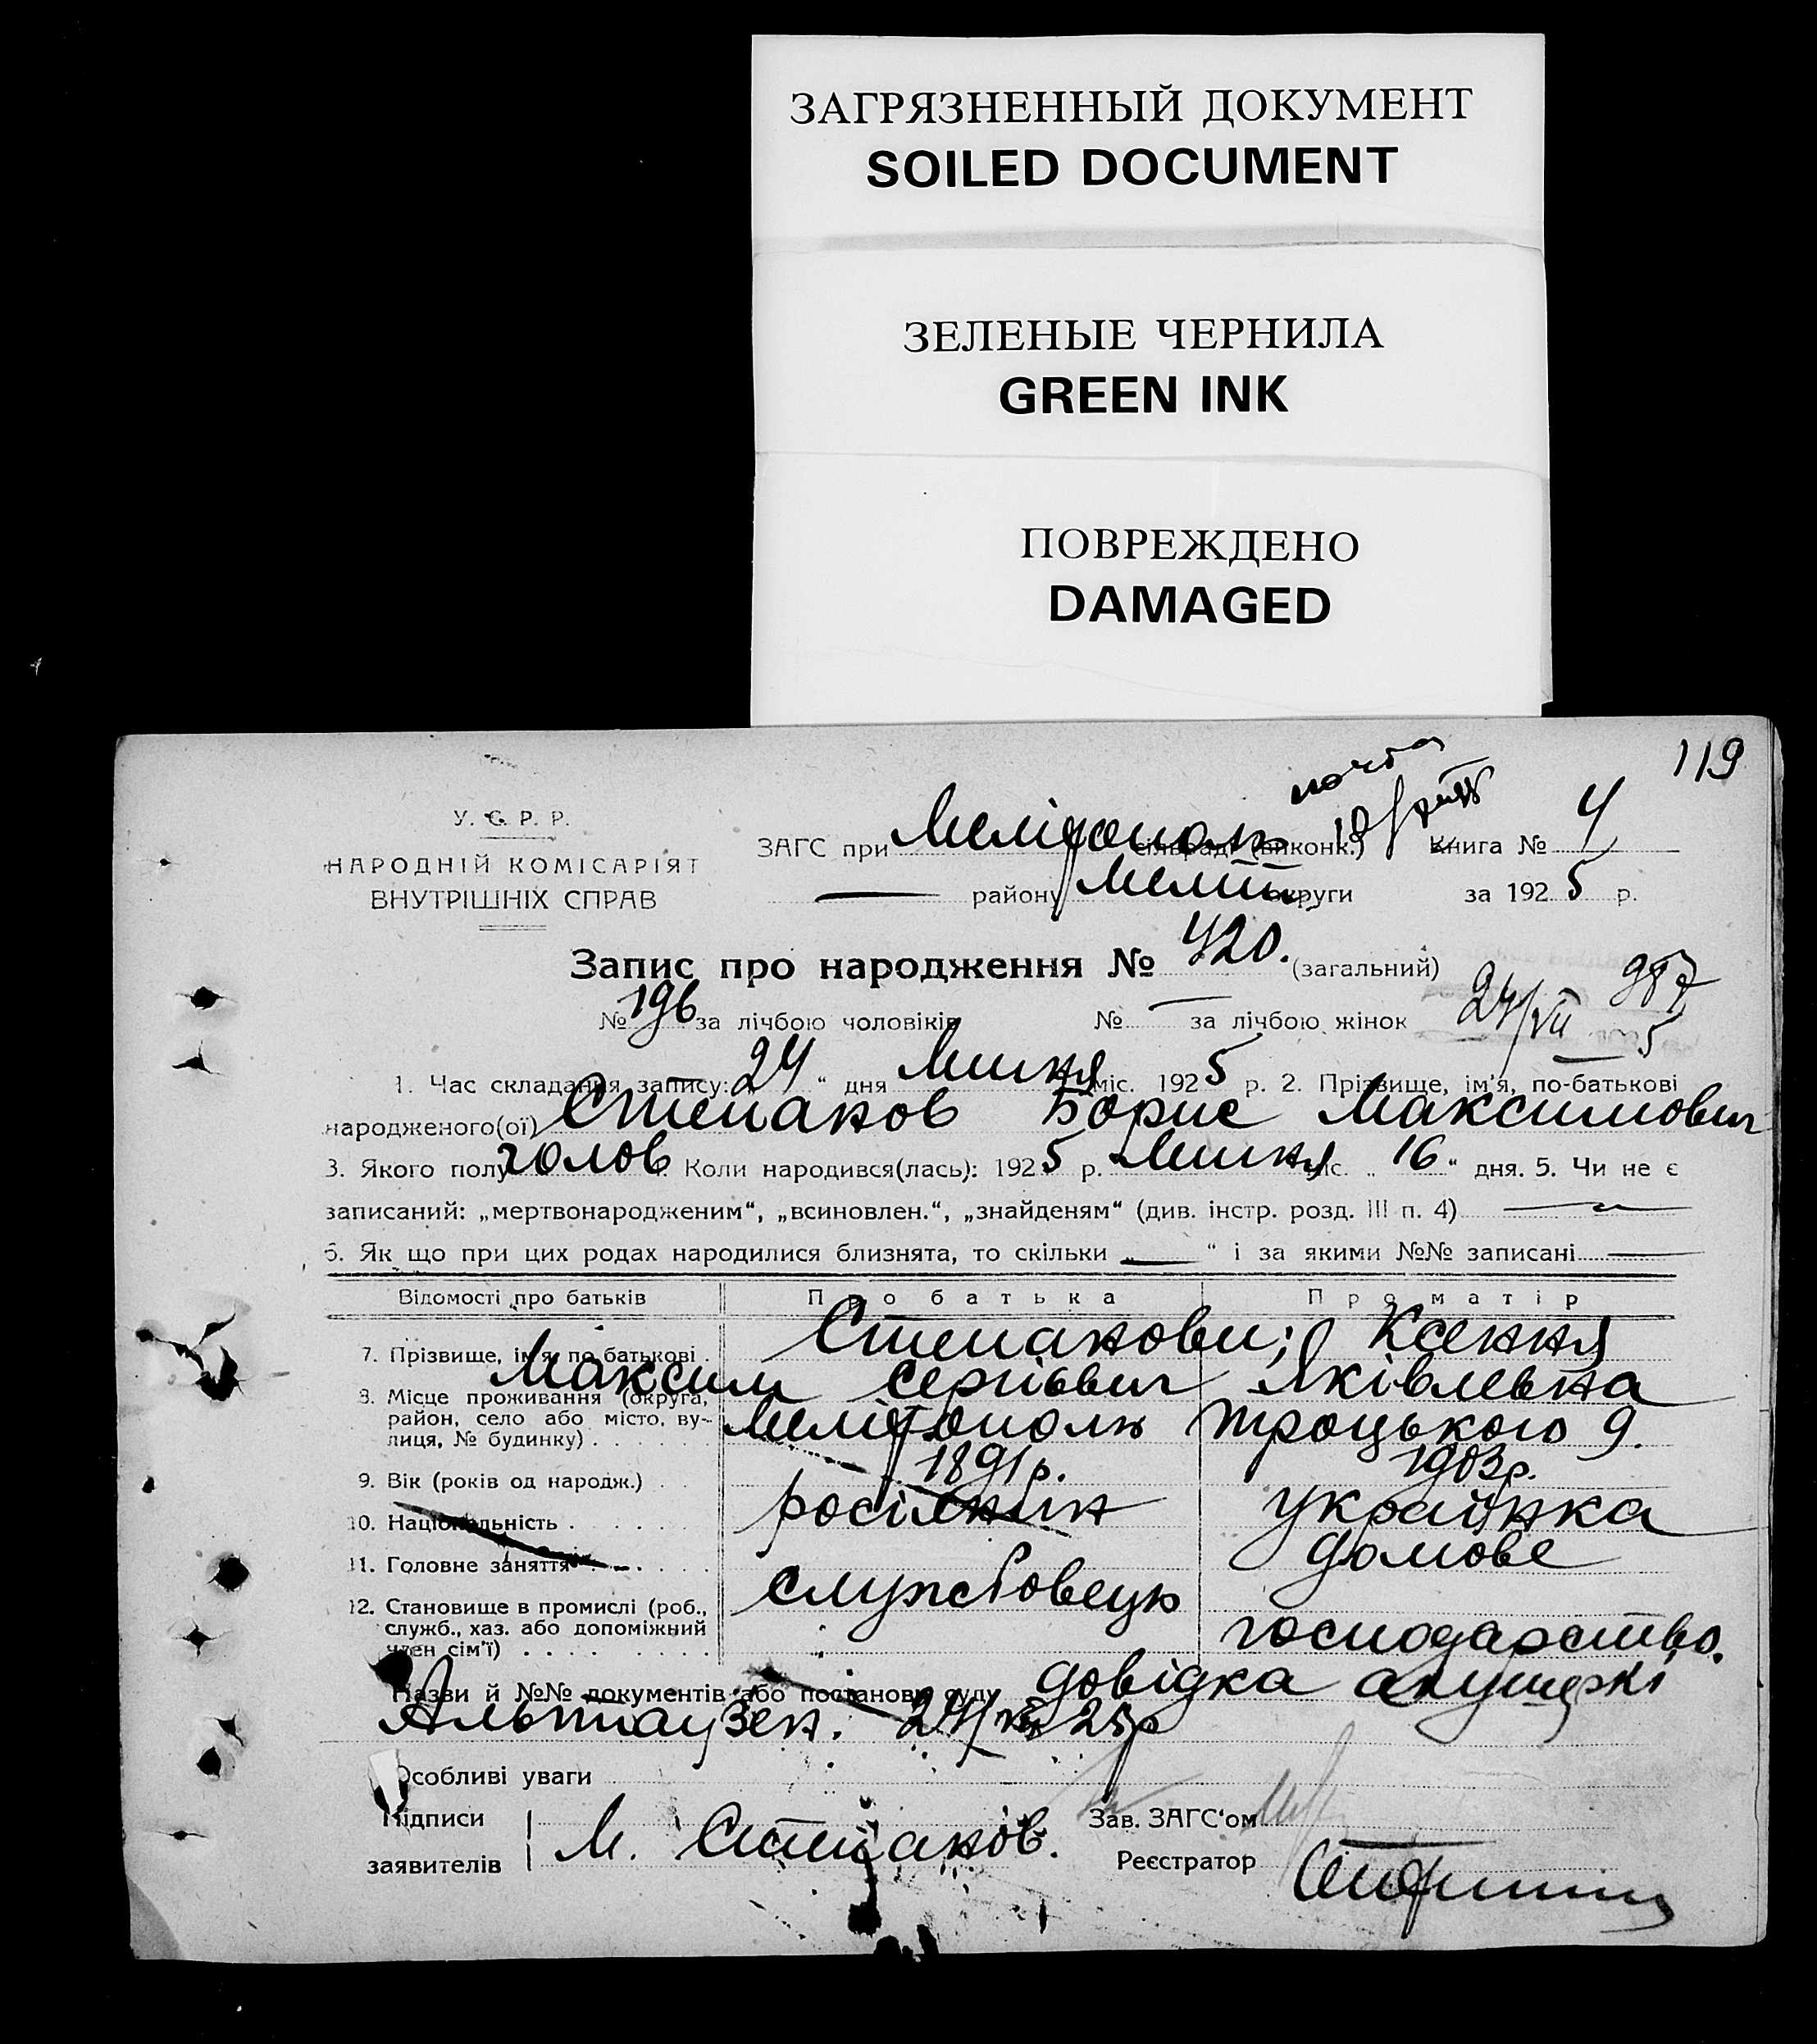 ЗАГРЯЗНЕННЫЙ ДОКУМЕНТ
SOILED DOCUMENT
ЗЕЛЕНЫЕ ЧЕРНИЛА
GREEN INK
ПОВРЕЖДЕНО
DAMAGED
119
У. С. Р. Р.
НАРОДНІЙ КОМІСАРІЯТ
ВНУТРІШНІХ СПРАВ
ЗАГС при сільраді (виконк.) Книга № 4
району Меліт. округи за 1925 р.
Запис про народження № 420. (загальний)
№ 196 за лічбою чоловіків № — за лічбою жінок 24/VII 5
987
1. Час складання запису: „24“ дня Липня міс. 1925 р. 2. Прізвище, ім'я, по-батькові
народженого(ої) Степанов Борис Максимович
3. Якого полу чолов Коли народився(лась): 1925 р. Липня міс. „16“ дня. 5. Чи не є
записаний: „мертвонародженим“, „всиновлен.“, „знайденям“ (див. інстр. розд. III п. 4) —
6. Як що при цих родах народилися близнята, то скільки „—“ і за якими №№ записані —
Відомості про батьків Про батька Про матір
7. Прізвище, ім'я, по батькові Степанови; Ксенія
Максим Сергієвич Яківлевна
8. Місце проживання (округа, район, село або місто, вулиця, № будинку) Мелітополь Троцького 9.
9. Вік (років од народж.) 1891р. 1903р.
10. Національність росіянин українка
11. Головне заняття домове
12. Становище в промислі (роб., служб., хаз. або допоміжний член сім'ї) службовець господарство.
Назви й №№ документів або постанови суду довідка акушеркі
Альтгаузен. 24/VII 25р
Особливі уваги
Підписи
заявителів М. Степанов.
Зав. ЗАГС'ом
Реєстратор